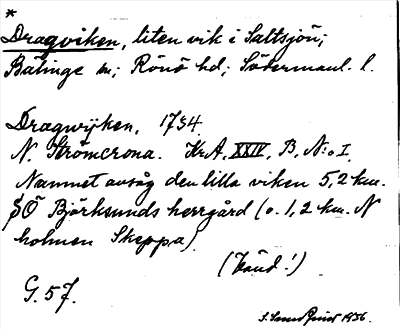 *
Dragviken, liten vik i Saltsjön;
Bälinge sn; Rönö hd; Södermanl. l.
Dragwijken, 1734.
N. Strömcrona. Kr.A. XXIV, B, N:o I
Namnet avsåg den lilla viken 5,2 km.
SÖ Björksunds herrgård (o. 1,2 km. N
holmen Skeppa).
(Känd!)
G. 57.
1936.